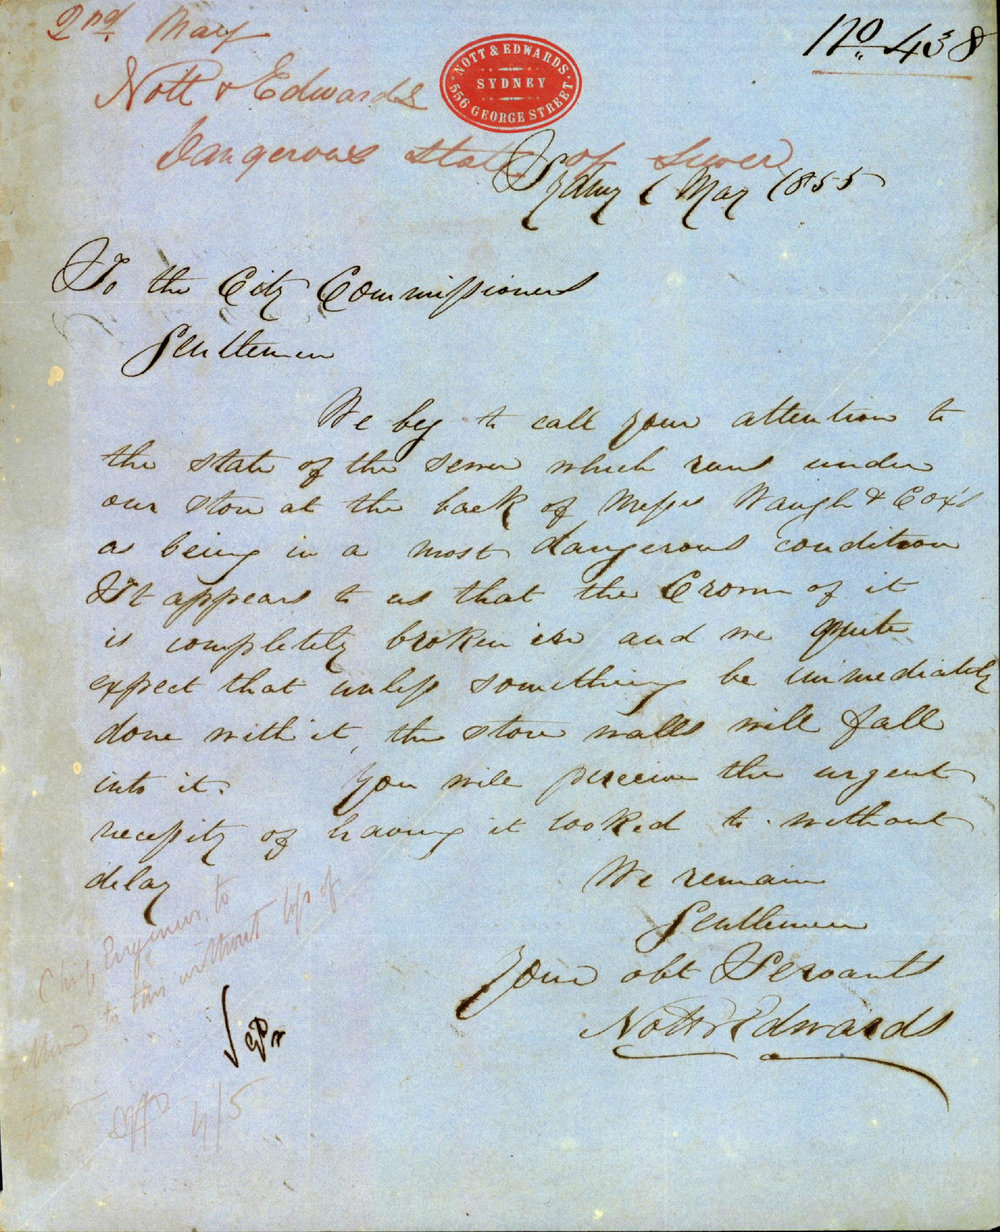 2nd. May
No. 438
Nott & Edwards
NOTT & EDWARDS
SYDNEY
556 GEORGE STREET
Dangerous state of sewer
Sydney 1 May 1855
To the City Commissioners
Gentlemen
We beg to call your attention to
the state of the sewer which runs under
our store at the back of Messrs Waugh & Cox's
as being in a most dangerous condition
It appears to us that the Crown of it
is completely broken in and we quite
expect that unless something be immediately
done with it, the store walls will fall
into it. You will perceive the urgent
necessity of having it looked to without
delay
We remain
Gentlemen
Your obt Servants
Nott & Edwards
Chief Engineer, to
to this without loss of
time
4/5